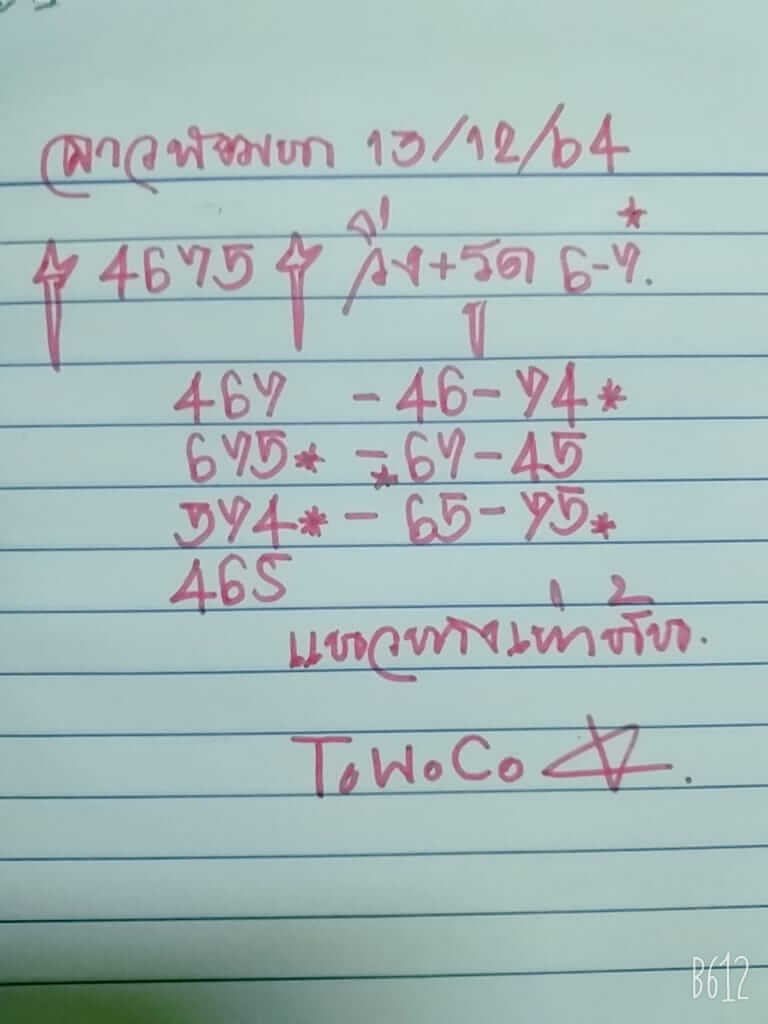 ลาวพัฒนา 13/12/64
4675 วิ่ง+รูด 6-7.
467 -46-74*
675* -*67-45
574* - 65-75*
465
แนวทางเท่านั้น.
T.W.C.
B612